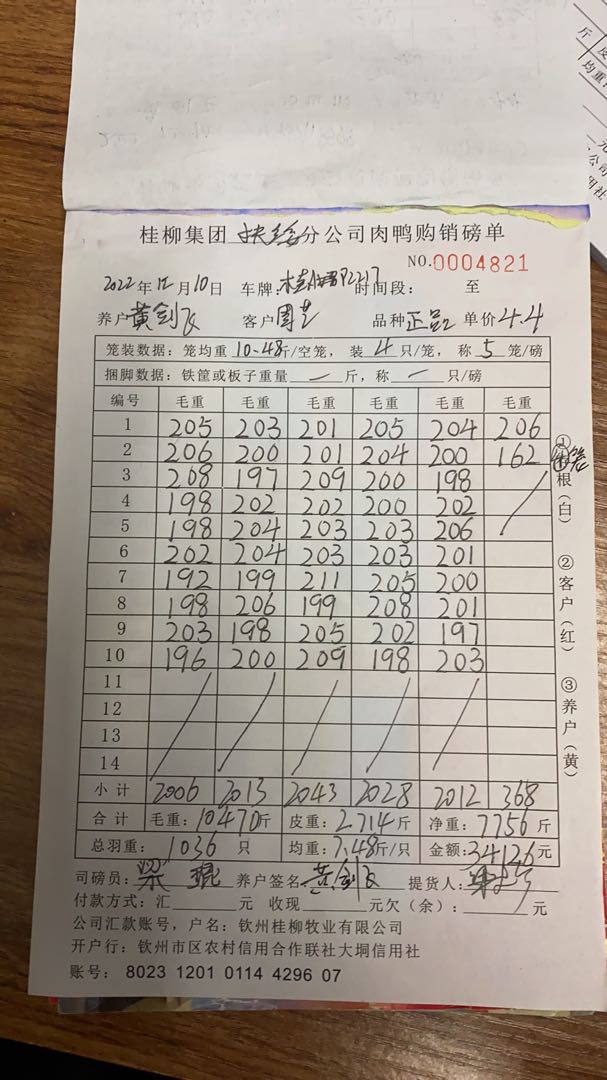 桂柳集团 分公司肉鸭购销磅单
NO.0004821
2022年12月10日 车牌: P2217 时间段: 至
养户黄剑飞 客户周艺 品种正品 单价4.4
笼装数据:笼均重10.48斤/空笼,装4只/笼,称5笼/磅
捆脚数据:铁筐或板子重量一斤,称一只/磅
编号 毛重 毛重 毛重 毛重 毛重 毛重
1 205 203 201 205 204 206
2 206 200 201 204 200 162
3 208 197 209 200 198
4 198 202 202 200 202
5 198 204 203 203 206
6 202 204 203 203 201
7 192 199 211 205 200
8 198 206 199 208 201
9 203 198 205 202 197
10 196 200 209 198 203
11
12
13
14
小计 2006 2013 2043 2028 2012 368
合计 毛重:10470斤 皮重:2714斤 净重:7756斤
总羽重:1036只 均重:7.48斤/只 金额:34126元
司磅员:梁琨 养户签名黄剑飞 提货人:
付款方式:汇 元 收现 元欠(余): 元
公司汇款账号,户名:钦州桂柳牧业有限公司
开户行:钦州市区农村信用合作联社大垌信用社
账号: 8023 1201 0114 4296 07
① 根(白) ②客户(红) ③养户(黄)
斤
均重
元
公司
用社